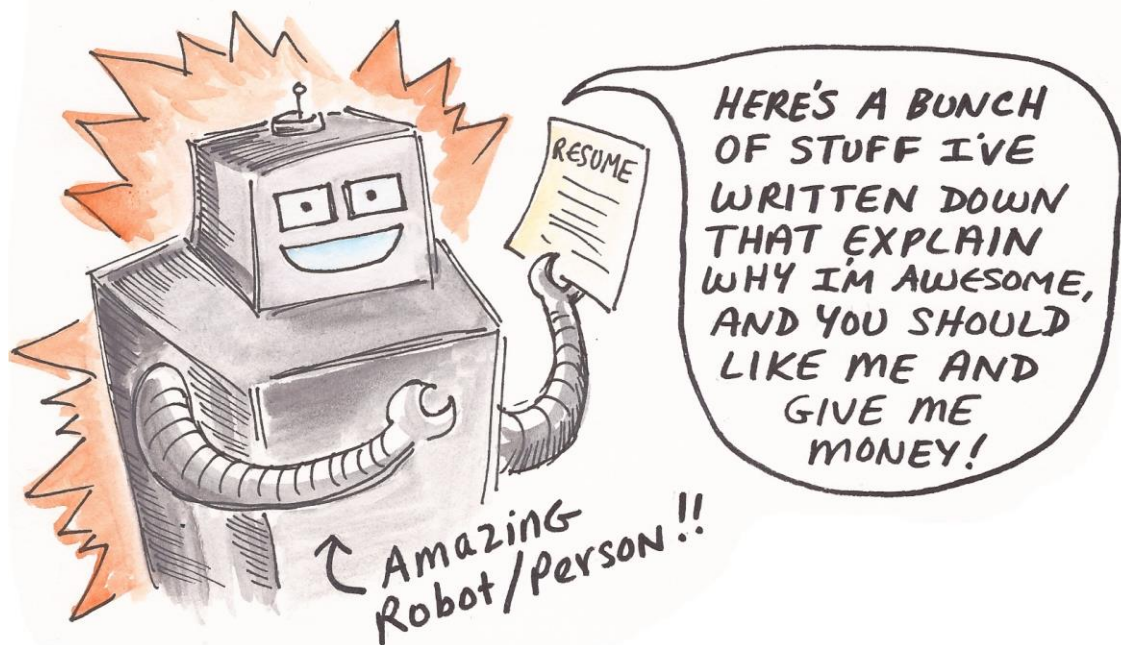 RESUME
HERE'S A BUNCH
OF STUFF I'VE
WRITTEN DOWN
THAT EXPLAIN
WHY I'M AWESOME,
AND YOU SHOULD
LIKE ME AND
GIVE ME
MONEY!
Amazing
Robot/Person!!